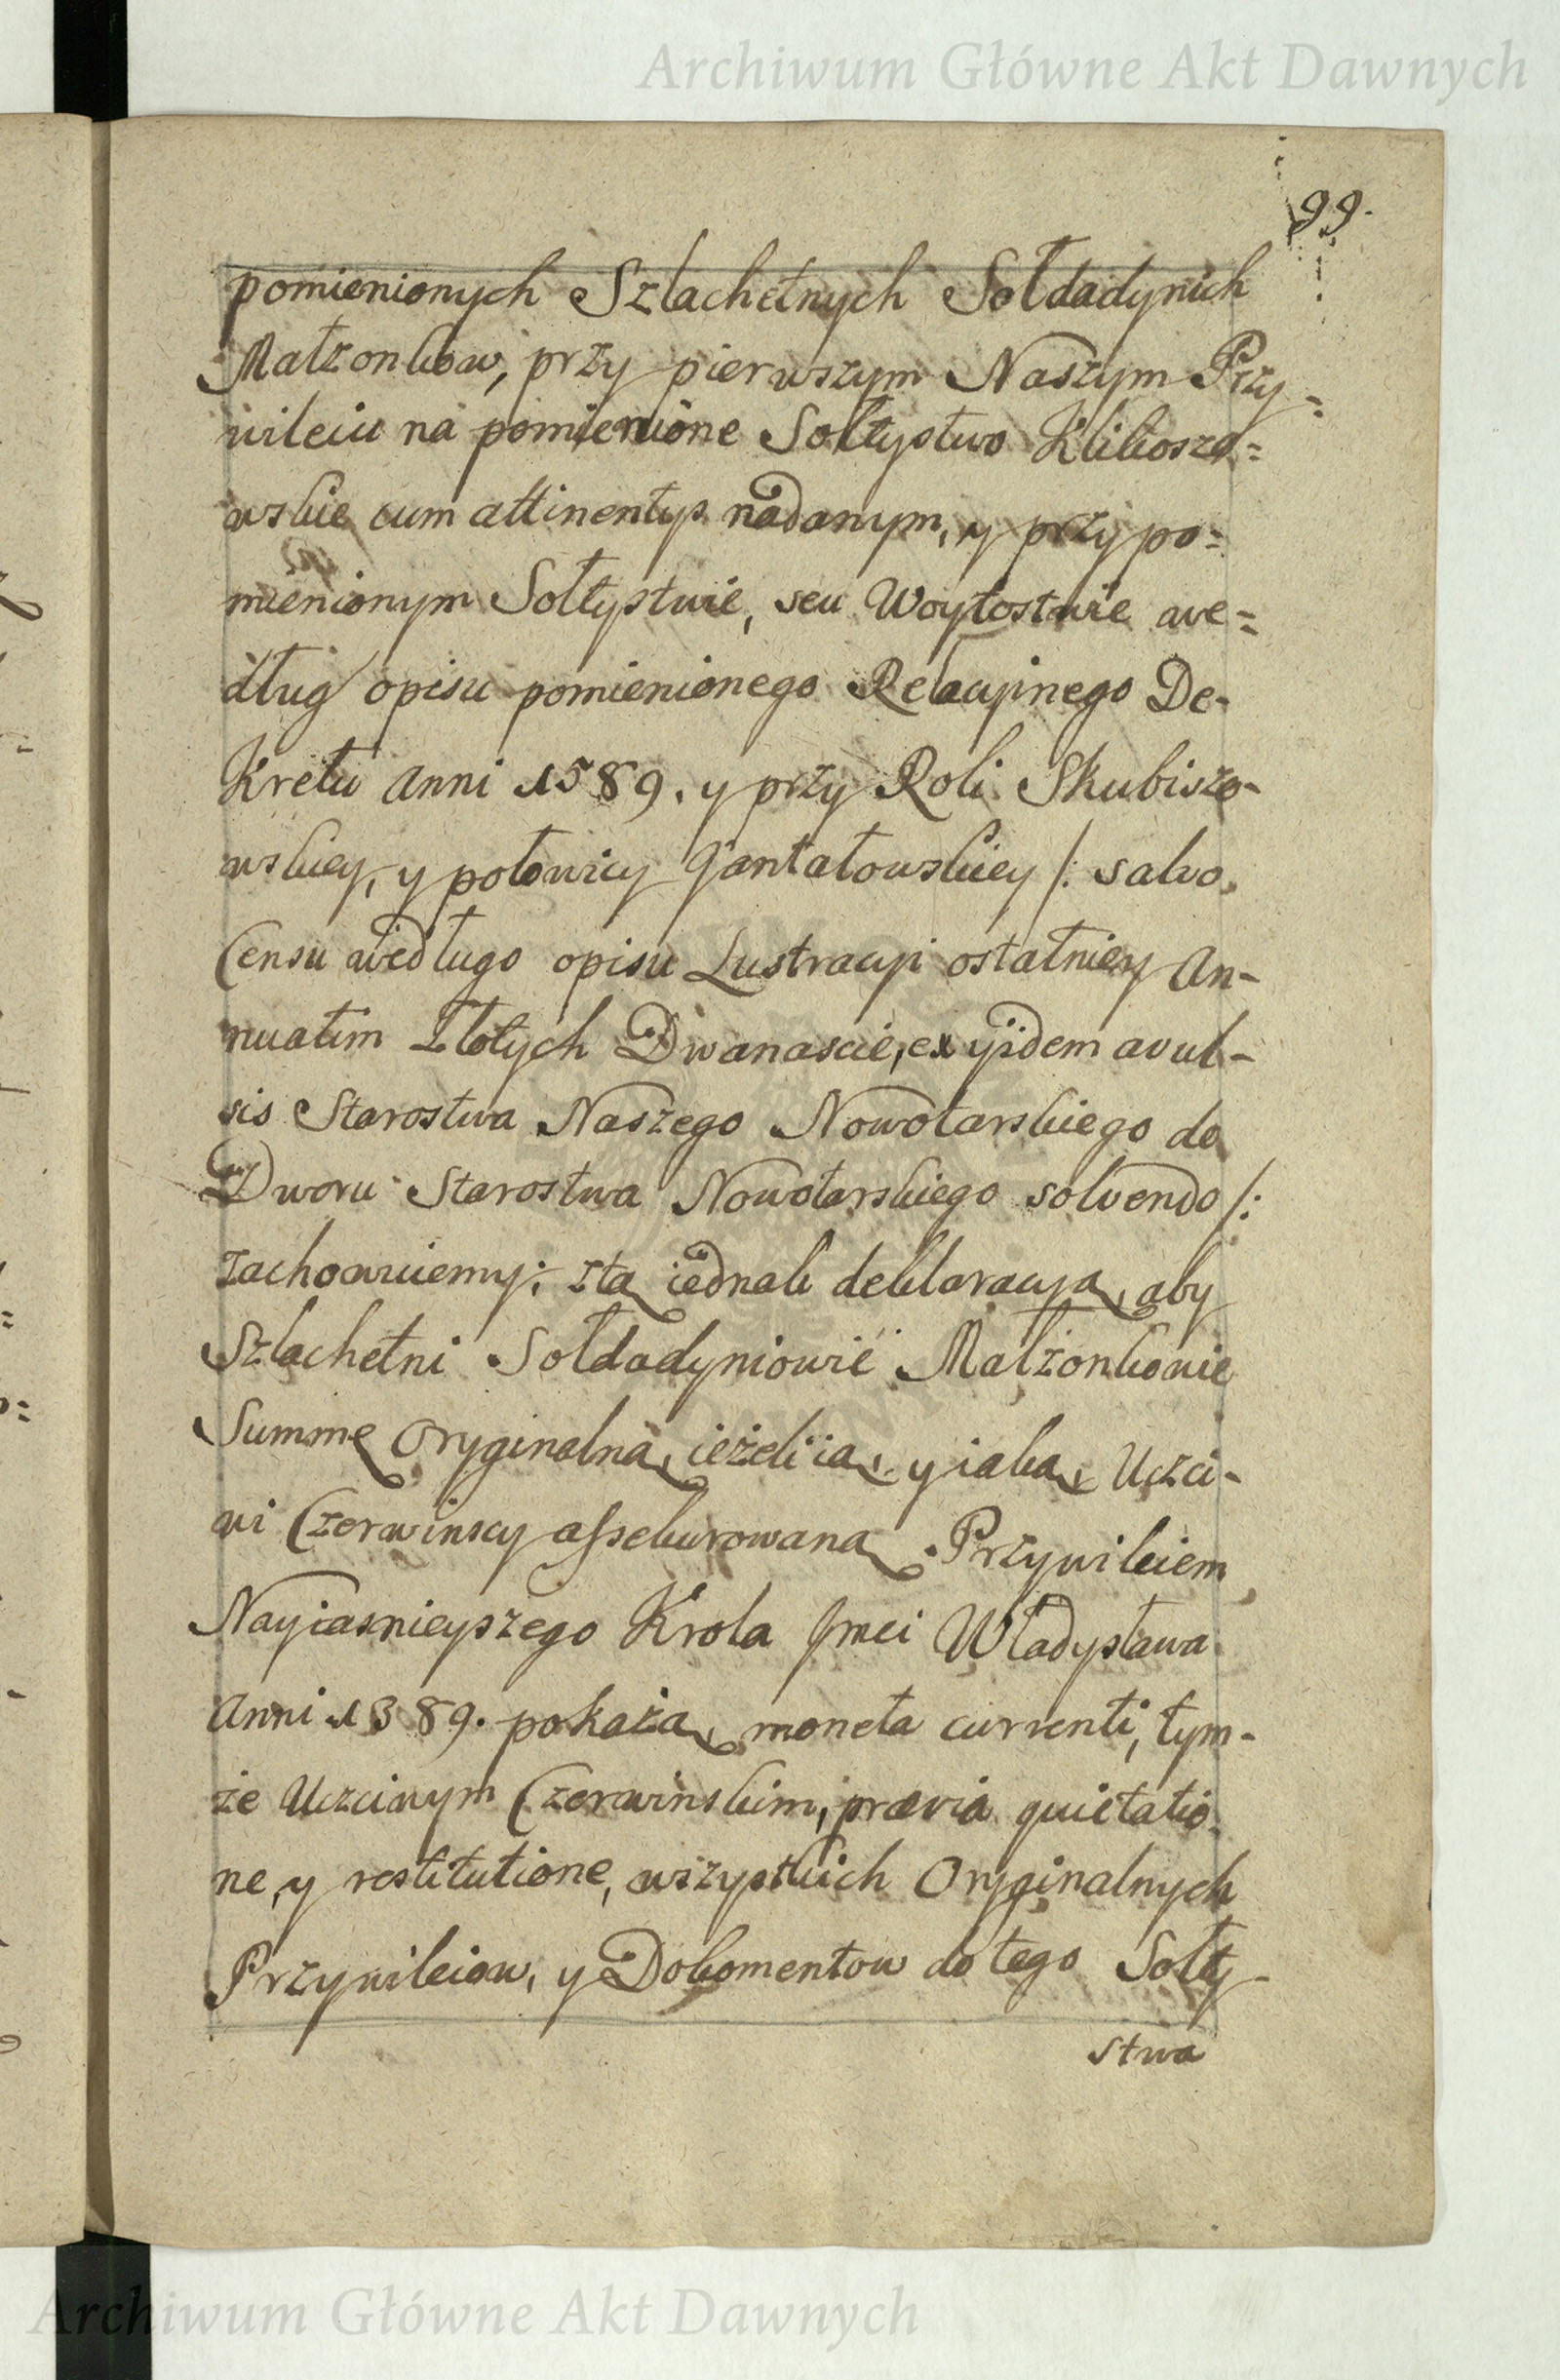 Archiwum Główne Akt Dawnych
99.
pomienionych Szlachetnych Sołdadynich
Małzonkow, przy pierwszym Naszym Przy=
wileiu na pomienione Sołtystwo Klikoszo=
wskie cum attinentys nadanym, y przy po=
mienionym Sołtystwie, seu Woytostwie we=
dług opisu pomienionego Relacyinego De-
Kretu Anni 1589. y przy Roli Skubiszo-
wskiey, y połowicy Gantałowskiey /: salvo
Censu według opisu Lustracyi ostatniey An-
nuatim Złotych Dwanascie, ex ijsdem avul-
sis Starostwa Naszego Nowotarskiego do
Dworu Starostwa Nowotarskiego solvendo /:
zachowuiemy; z tą iednak deklaracyą, aby
Szlachetni Sołdadyniowie Małżonkowie
Summę Oryginalną, ieżeli ią, y iaką, Uczci-
wi Czerwinscy assekurowaną Przywileiem
Nayiasnieyszego Krola Jmci Władysława
Anni 1389. pokażą, moneta currenti, tym-
że Uczciwym Czerwinskim, prævia quietatio
ne, y restitutione, wszystkich Oryginalnych
Przywileiow, y Dokomentow do tego Sołty-
stwa
Archiwum Główne Akt Dawnych